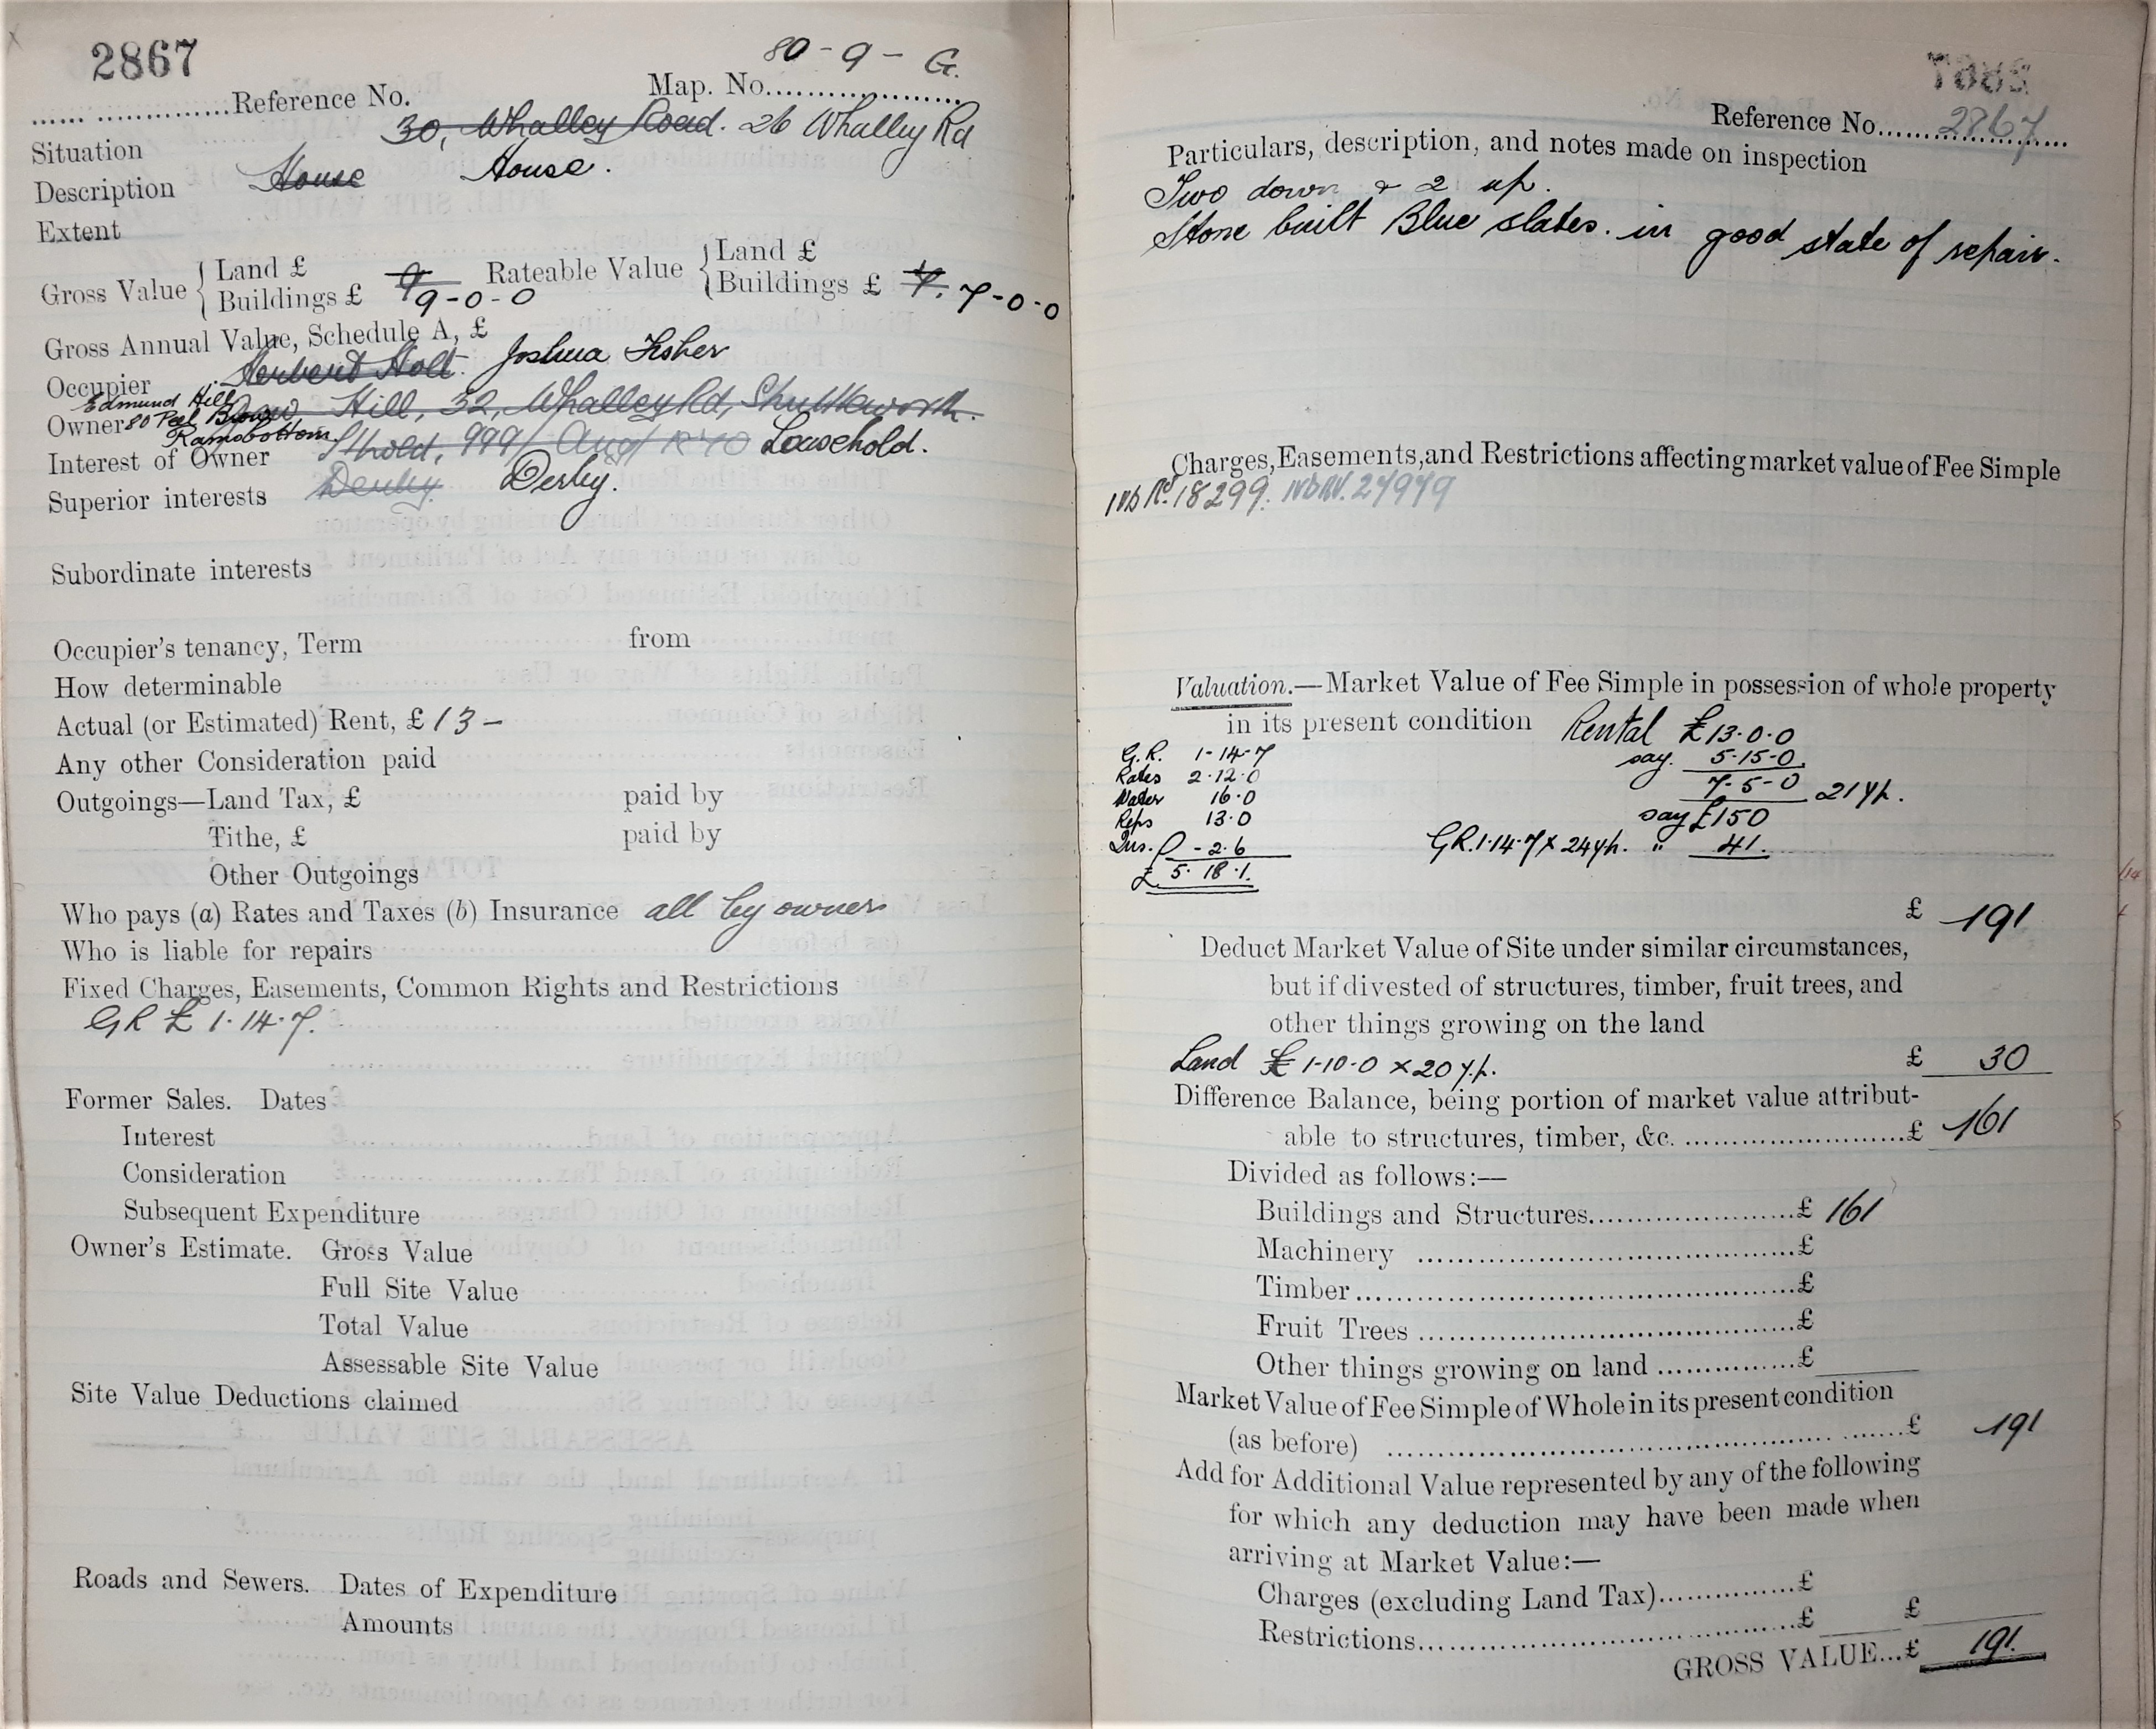 2867
80-9-G.
Reference No. Map. No.
Situation 30, Whalley Road. 26 Whalley Rd
Description House House.
Extent
Gross Value { Land £ Buildings £ 9 9-0-0 Rateable Value { Land £ Buildings £ 7. 7-0-0
Gross Annual Value, Schedule A, £
Occupier Herbert Holt. Joshua Fisher
Edmund Hill
Owner 80 Peel Brow Hill, 32, Whalley Rd, Shuttleworth.
Ramsbottom
Interest of Owner L'hold, 999/ Leasehold.
Superior interests Derby. Derby.
Subordinate interests
Occupier's tenancy, Term from
How determinable
Actual (or Estimated) Rent, £ 13-
Any other Consideration paid
Outgoings—Land Tax, £ paid by
Tithe, £ paid by
Other Outgoings
Who pays (a) Rates and Taxes (b) Insurance all by owner
Who is liable for repairs
Fixed Charges, Easements, Common Rights and Restrictions
GR £ 1·14·7.
Former Sales. Dates
Interest
Consideration
Subsequent Expenditure
Owner's Estimate. Gross Value
Full Site Value
Total Value
Assessable Site Value
Site Value Deductions claimed
Roads and Sewers. Dates of Expenditure
Amounts
Reference No. 2867
Particulars, description, and notes made on inspection
Two down & 2 up.
Stone built Blue slates. in good state of repair.
Charges, Easements, and Restrictions affecting market value of Fee Simple
IVD No. 18299. IVD No. 24949
Valuation.—Market Value of Fee Simple in possession of whole property
in its present condition Rental £13·0·0
G.R. 1-14-7 say. 5-15-0
Rates 2·12·0 7-5-0 21 yp.
Water 16·0 say £150
Reps 13·0
Ins. - 2·6 GR. 1·14·7 x 24 yp. " 41.
£ 5·18·1.
£ 191
Deduct Market Value of Site under similar circumstances,
but if divested of structures, timber, fruit trees, and
other things growing on the land
Land £ 1-10-0 x 20 y.p. £ 30
Difference Balance, being portion of market value attribut-
able to structures, timber, &c. £ 161
Divided as follows:—
Buildings and Structures £ 161
Machinery £
Timber £
Fruit Trees £
Other things growing on land £
Market Value of Fee Simple of Whole in its present condition
(as before) £ 191
Add for Additional Value represented by any of the following
for which any deduction may have been made when
arriving at Market Value:—
Charges (excluding Land Tax) £
Restrictions £ £
GROSS VALUE...£ 191.